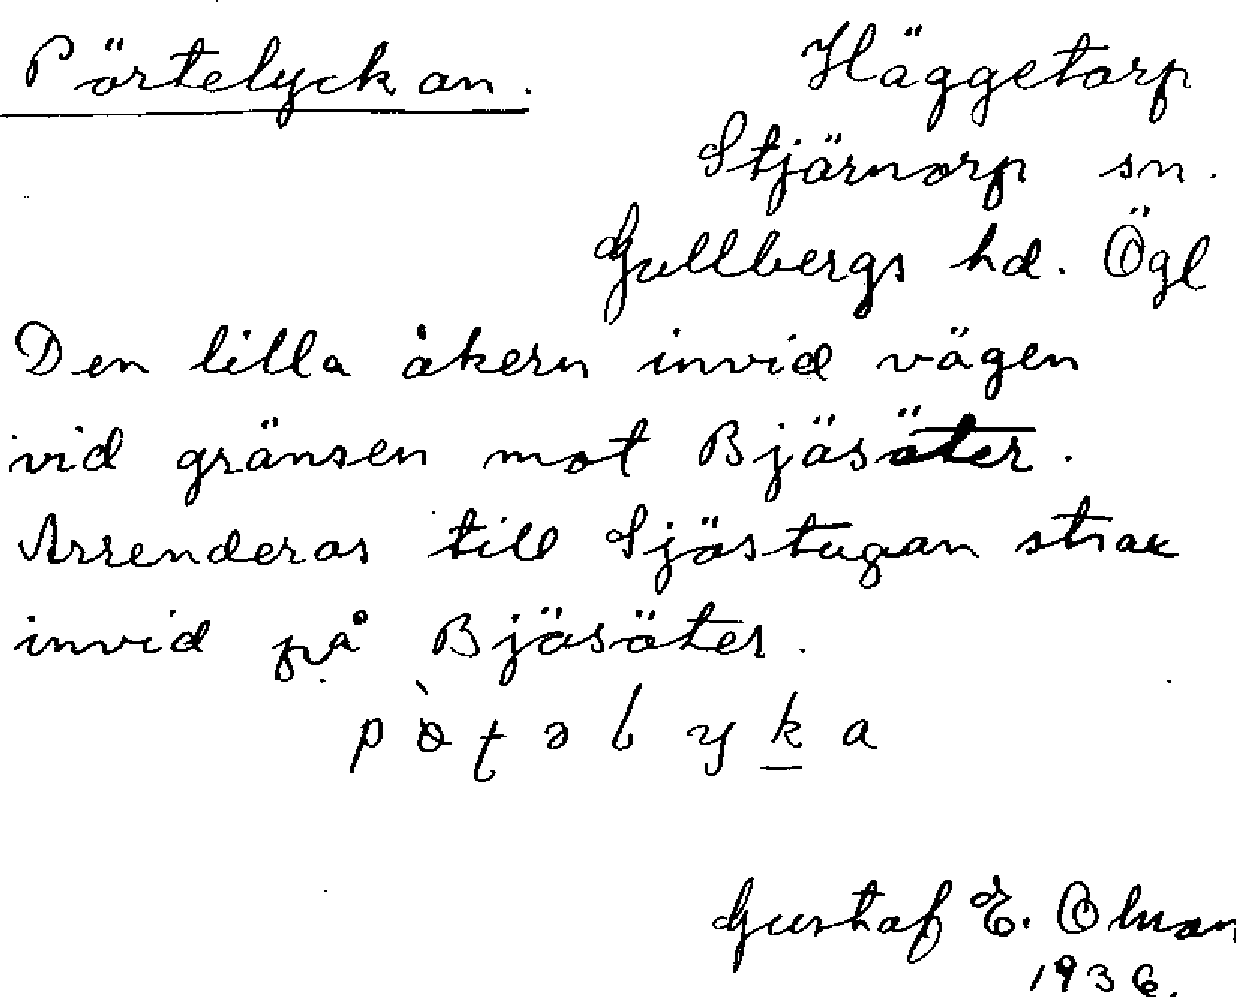 Pörtelyckan.
Häggetorp
Stjärnorp sn.
Gullbergs hd. Ögl
Den lilla åkern invid vägen
vid gränsen mot Bjäsäter.
Arrenderas till Sjöstugan strax
invid på Bjäsäter.
Gustaf E. Olson
1936.